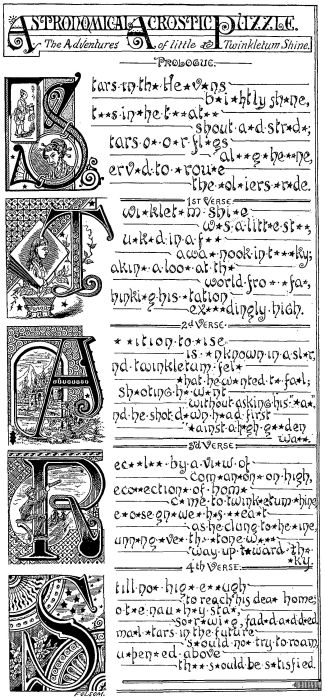 ASTRONOMICAL ACROSTIC PUZZLE.
The Adventures of little Twinkletum Shine.
PROLOGUE.
S
tars·in·th*·He*v*ns
b*i*htly sh*ne,
t**s·in·he·t**at**
shout·a*d·str*d*;
tars·o*o*r·fl*gs
al**g·he**ne,
erv*d·to·rou*e
the·*ol*iers·*r*de.
1ST VERSE.
T
wi*klet*m·shi*e
w*s·a·litt*e·st**,
u*k*d·in·a·f**
awa*·nook·in·t***ky;
akin*·a·loo*·at·th*
world·fro**·fa*,
hinki*g·his·*tation
ex***dingly·high.
2D VERSE.
A
**ition·to·ise
is·*nknown·in·a·s*ar,
nd·twinkletum·fel*
*hat·he·w*nted·t*·fa*l;
sh*oting·h*·w*nt
without·asking·his·"*a*,"
nd·he·shot·d*wn·h*ad·first
*ainst·a·h*gh·g**den
wa**.
3D VERSE.
R
ec**l**·by·a·vi*w·of
com*an*on·on·high,
eco**ection*·of·hom*
c*me·to·twink*etum·*hine,
e*ose·gn*we*·his·**ea*t
as·he·clung·to·*he·*ine,
unn*ng·ve*·th**tone·w***
way·up·t*ward·th*
*ky.
4TH VERSE.
S
till·no*·hig*·e**ugh
to·reach·his·dea*·home;
o·t*e·nau*h*y·sta*,
so*r*wi*g,·fa*d·a*d*d*ed
ma*l·*tars·in·the·future
s*ould·no*·try·to·roam,
u*pen*ed·above
th**·s*ould·be·s*tisfied.
FOLSOM.